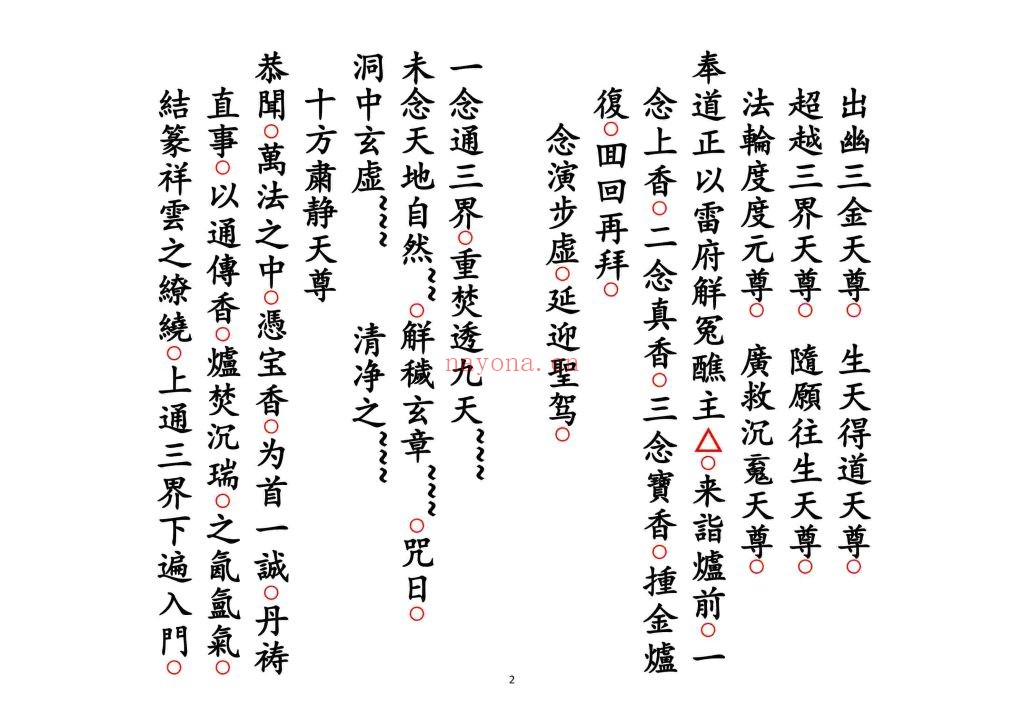 出幽三金天尊○ 生天得道天尊○
超越三界天尊○ 隨願往生天尊○
法輪度度元尊○ 廣救沉魂天尊○
奉道正以雷府解冤醮主△○来詣爐前○一
念上香○二念真香○三念寶香○揰金爐
復○囬回再拜○
念演步虛○延迎聖驾○
一念通三界○重焚透九天~~~
未念天地自然~~○解穢玄章~~~○咒日○
洞中玄虛~~~ 清净之~~~
十方肅静天尊
恭聞○萬法之中○憑宝香○为首一誠○丹祷
直事○以通傳香○爐焚沉瑞○之氤氳氣○
結篆祥雲之繚繞○上通三界下遍入門○
nayona.cn
2